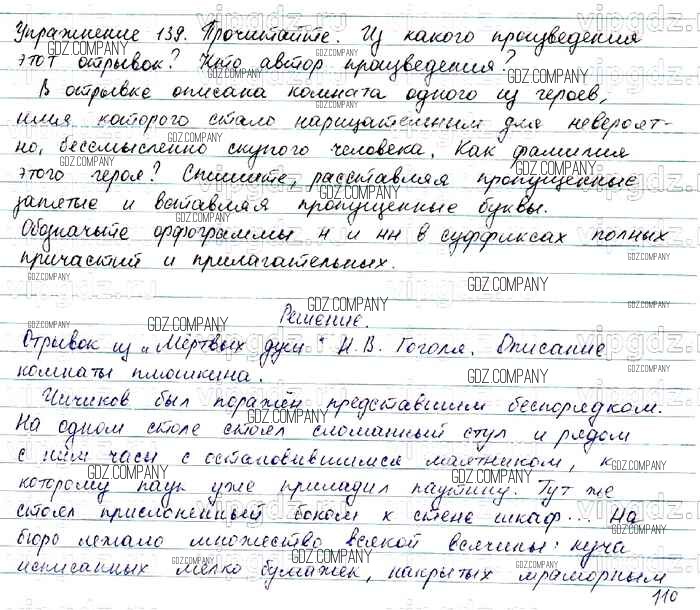 Упражнение 139. Прочитайте. Из какого произведения
этот отрывок? Кто автор произведения?
В отрывке описана комната одного из героев,
имя которого стало нарицательным для невероят-
но, бессмысленно скупого человека. Как фамилия
этого героя? Спишите, расставляя пропущенные
запятые и вставляя пропущенные буквы.
Обозначьте орфограммы н и нн в суффиксах полных
причастий и прилагательных.
Решение.
Отрывок из „Мёртвых душ" Н.В. Гоголя. Описание
комнаты плюшкина.
Чичиков был поражён представшим беспорядком.
На одном столе стоял сломанный стул и рядом
с ним часы с остановившимся маятником, к
которому паук уже приладил паутину. Тут же
стоял прислоненный боком к стене шкаф... На
бюро лежало множество всякой всячины: куча
исписанных мелко бумажек, накрытых мраморным
110
GDZ.COMPANY
vipgdz.ru